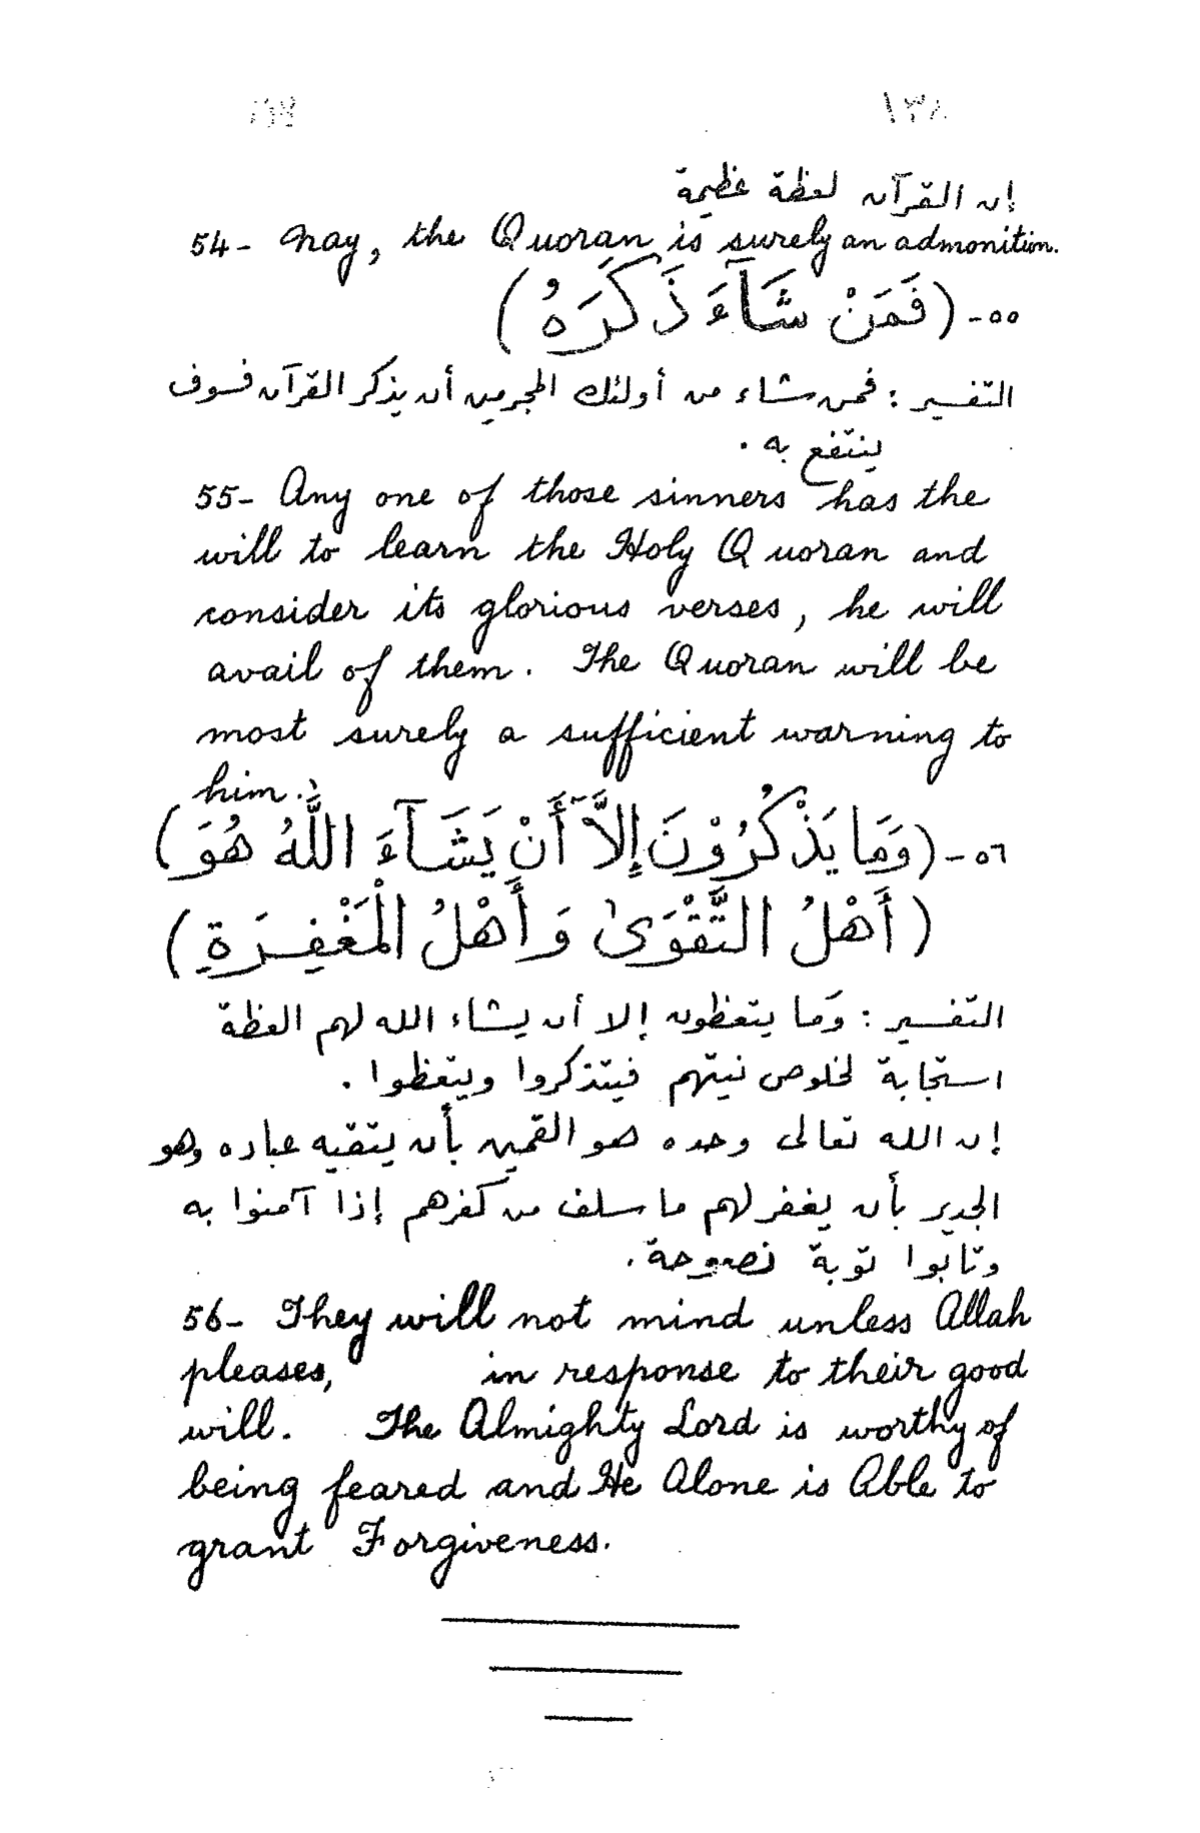 ١٣٨
إن القرآن لعظة عظيمة
54- Nay, the Quoran is surely an admonition.
٥٥- (فَمَنْ شَآءَ ذَكَرَهُ)
التفسير : فمن شاء من أولئك المجرمين أن يذكر القرآن فسوف
ينتفع به .
55- Any one of those sinners has the
will to learn the Holy Quoran and
consider its glorious verses, he will
avail of them. The Quoran will be
most surely a sufficient warning to
him.
٥٦- (وَمَا يَذْكُرُوْنَ إِلاَّ أَنْ يَشَآءَ اللَّهُ هُوَ)
(أَهْلُ التَّقْوَىٰ وَأَهْلُ الْمَغْفِرَةِ)
التفسير : وَما يتعظون إلا أن يشاء الله لهم العظة
استجابة لخلوص نيتهم فيتذكروا ويتعظوا .
إن الله تعالى وحده هو القمين بأن يتقيه عباده وهو
الجدير بأن يغفر لهم ما سلف من كفرهم إذا آمنوا به
وتابوا توبة نصوحة .
56- They will not mind unless Allah
pleases, in response to their good
will. The Almighty Lord is worthy of
being feared and He Alone is Able to
grant Forgiveness.